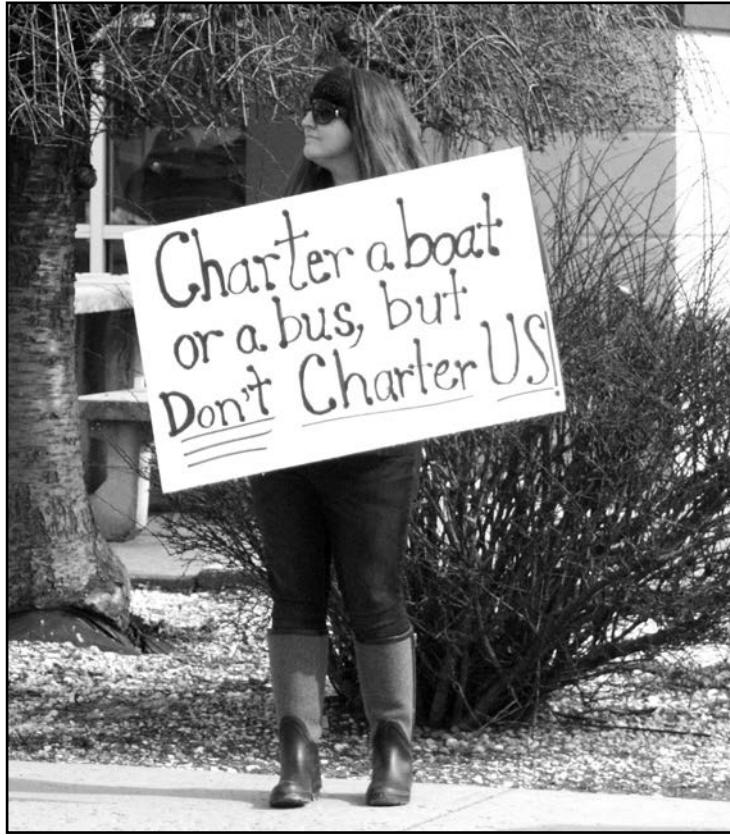 Charter a boat
or a bus, but
Don't Charter US!